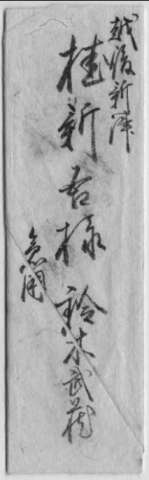 越後新津
桂新吾様
鈴木武蔵
急用